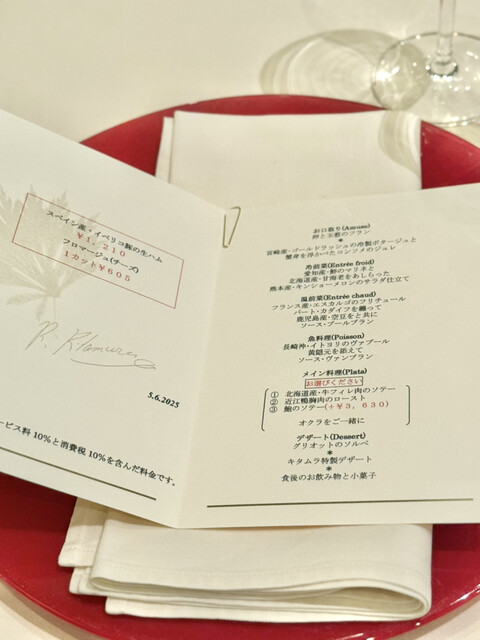 スペイン産・イベリコ豚の生ハム
￥1,210
フロマージュ(チーズ)
1カット￥605
5.6.2025
ービス料 10%と消費税 10%を含んだ料金です。
お口取り(Amuse)
卵と玉葱のフラン
*
宮崎産・ゴールドラッシュの冷製ポタージュと
蟹身を浮かべたコンソメのジュレ
冷前菜(Entrée froid)
愛知産・鮮のマリネと
北海道産・甘海老をあしらった
熊本産・キンショーメロンのサラダ仕立て
温前菜(Entrée chaud)
フランス産・エスカルゴのフリチュール
パート・カダイフを纏って
鹿児島産・空豆をと共に
ソース・プールブラン
魚料理(Poisson)
長崎沖・イトヨリのヴァプール
黄隠元を添えて
ソース・ヴァンブラン
メイン料理(Plats)
お選びください
① 北海道産・牛フィレ肉のソテー
② 近江鴨胸肉のロースト
③ 鮑のソテー(+￥3,630)
オクラをご一緒に
デザート(Dessert)
グリオットのソルベ
*
キタムラ特製デザート
*
食後のお飲み物と小菓子